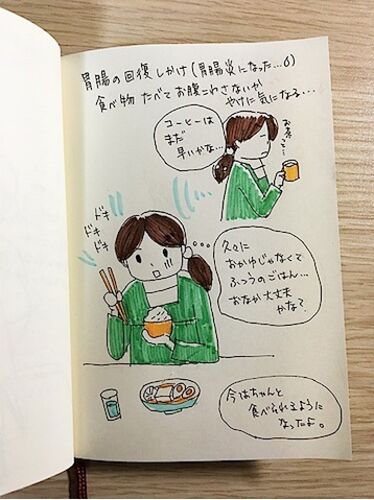 胃腸の回復しかけ(胃腸炎になった…6)
食べ物 たべてお腹こわさないか
やけに気になる…
コーヒーは
まだ
早いかな…
お茶って〜
ドキ
ドキ
ドキ
久々に
おかゆじゃなくて
ふつうのごはん…
おなか大丈夫
かな？
今はちゃんと
食べられるように
なったよ。